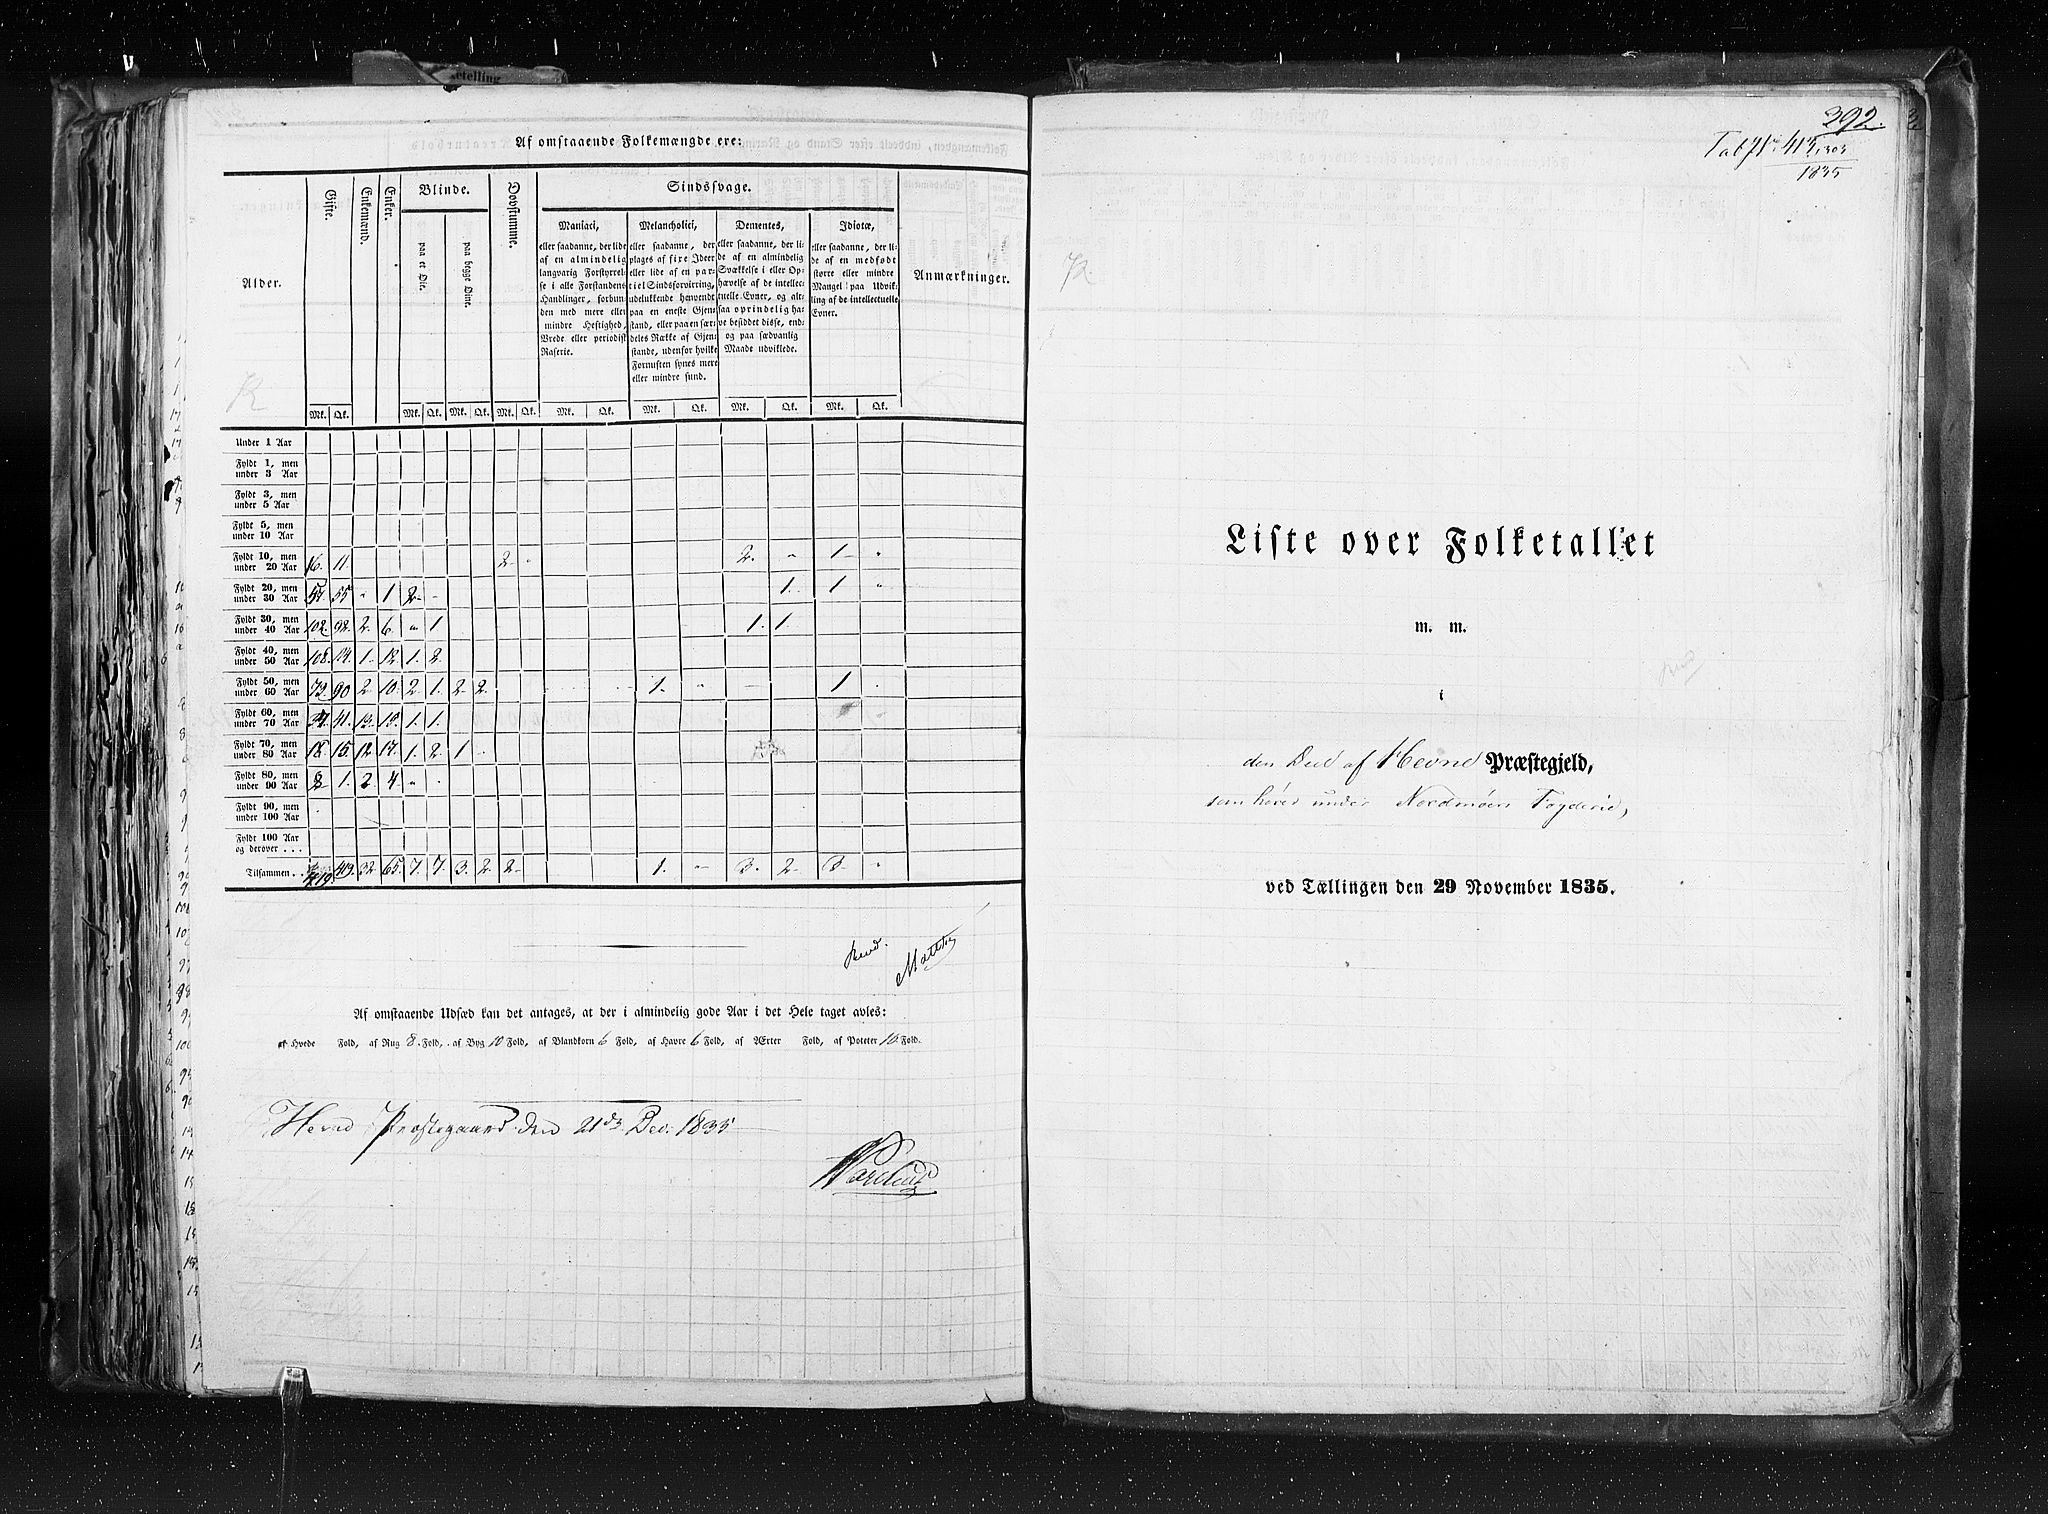 etelling
Af omstaaende Folkemængde ere:
Alder. Gifte. Enkemænd. Enker. Blinde. Døvstumme. Sindssvage. Anmærkninger.
paa et Øie. paa begge Øine.
Maniaci,
eller saadanne, der lide
af en almindelig
langvarig Forstyrrel-
se i alle Forstandens
Handlinger, forbun-
den med mere eller
mindre Heftighed,
Vrede eller periodisk
Raserie.
Melancholici,
eller saadanne, der
plages af fixe Ideer
eller lide af en par-
tiel Sindsforvirring,
udelukkende henvendt
paa en eneste Gjen-
stand, eller paa en sær-
deles Række af Gjen-
stande, udenfor hvilke
Fornuften synes mere
eller mindre sund.
Dementes,
eller saadanne, der li-
de af en almindelig
Svækkelse i eller Op-
hævelse af de intellec-
tuelle Evner, og alt-
saa oprindelig ha-
ve besiddet disse, end-
og paa sædvanlig
Maade udviklede.
Idiotæ,
eller saadanne, der li-
de af en medfødt
større eller mindre
Mangel paa Udvik-
ling af de intellectuelle
Evner.
Mk. Qk. Mk. Qk. Mk. Qk. Mk. Qk. Mk. Qk. Mk. Qk. Mk. Qk. Mk. Qk.
Under 1 Aar
Fyldt 1, men
under 3 Aar
Fyldt 3, men
under 5 Aar
Fyldt 5, men
under 10 Aar
Fyldt 10, men
under 20 Aar 16. 11. 2 " 2. " 1 "
Fyldt 20, men
under 30 Aar 57. 55 " 1 2 - 1. 1 "
Fyldt 30, men
under 40 Aar 102. 92. 2. 6. " 1 1. 1.
Fyldt 40, men
under 50 Aar 108. 114. 1. 12. 1. 2.
Fyldt 50, men
under 60 Aar 73. 90 2 10. 2. 1. 2 2. 1. " - 1 .
Fyldt 60, men
under 70 Aar 41. 13. 15. 1. 1.
Fyldt 70, men
under 80 Aar 18. 15. 12 17. 1. 2. 1 .
Fyldt 80, men
under 90 Aar 1. 2. 4. "
Fyldt 90, men
under 100 Aar
Fyldt 100 Aar
og derover . . .
Tilsammen . . 419. 419. 32. 65. 7. 7. 3. 2. 2 1. " 3. 2. 3 "
Revd.
Af omstaaende Udsæd kan det antages, at der i almindelig gode Aar i det Hele taget avles:
af Hvede Fold, af Rug 8 Fold, af Byg 10 Fold, af Blandkorn 6 Fold, af Havre 6 Fold, af Ærter Fold, af Poteter 10 Fold.
Hevne Præstegaard den 21de Dec. 1835
292.
1835
Liste over Folketallet
m. m.
i
den Deel af Hevne Præstegjeld,
som hører under Nordmøers Fogderie,
ved Tællingen den 29 November 1835.